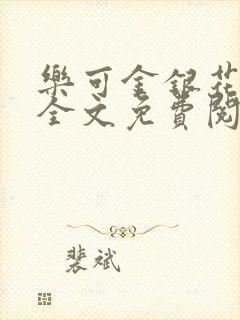 樂可金銀花
全文免費閱
裴斌